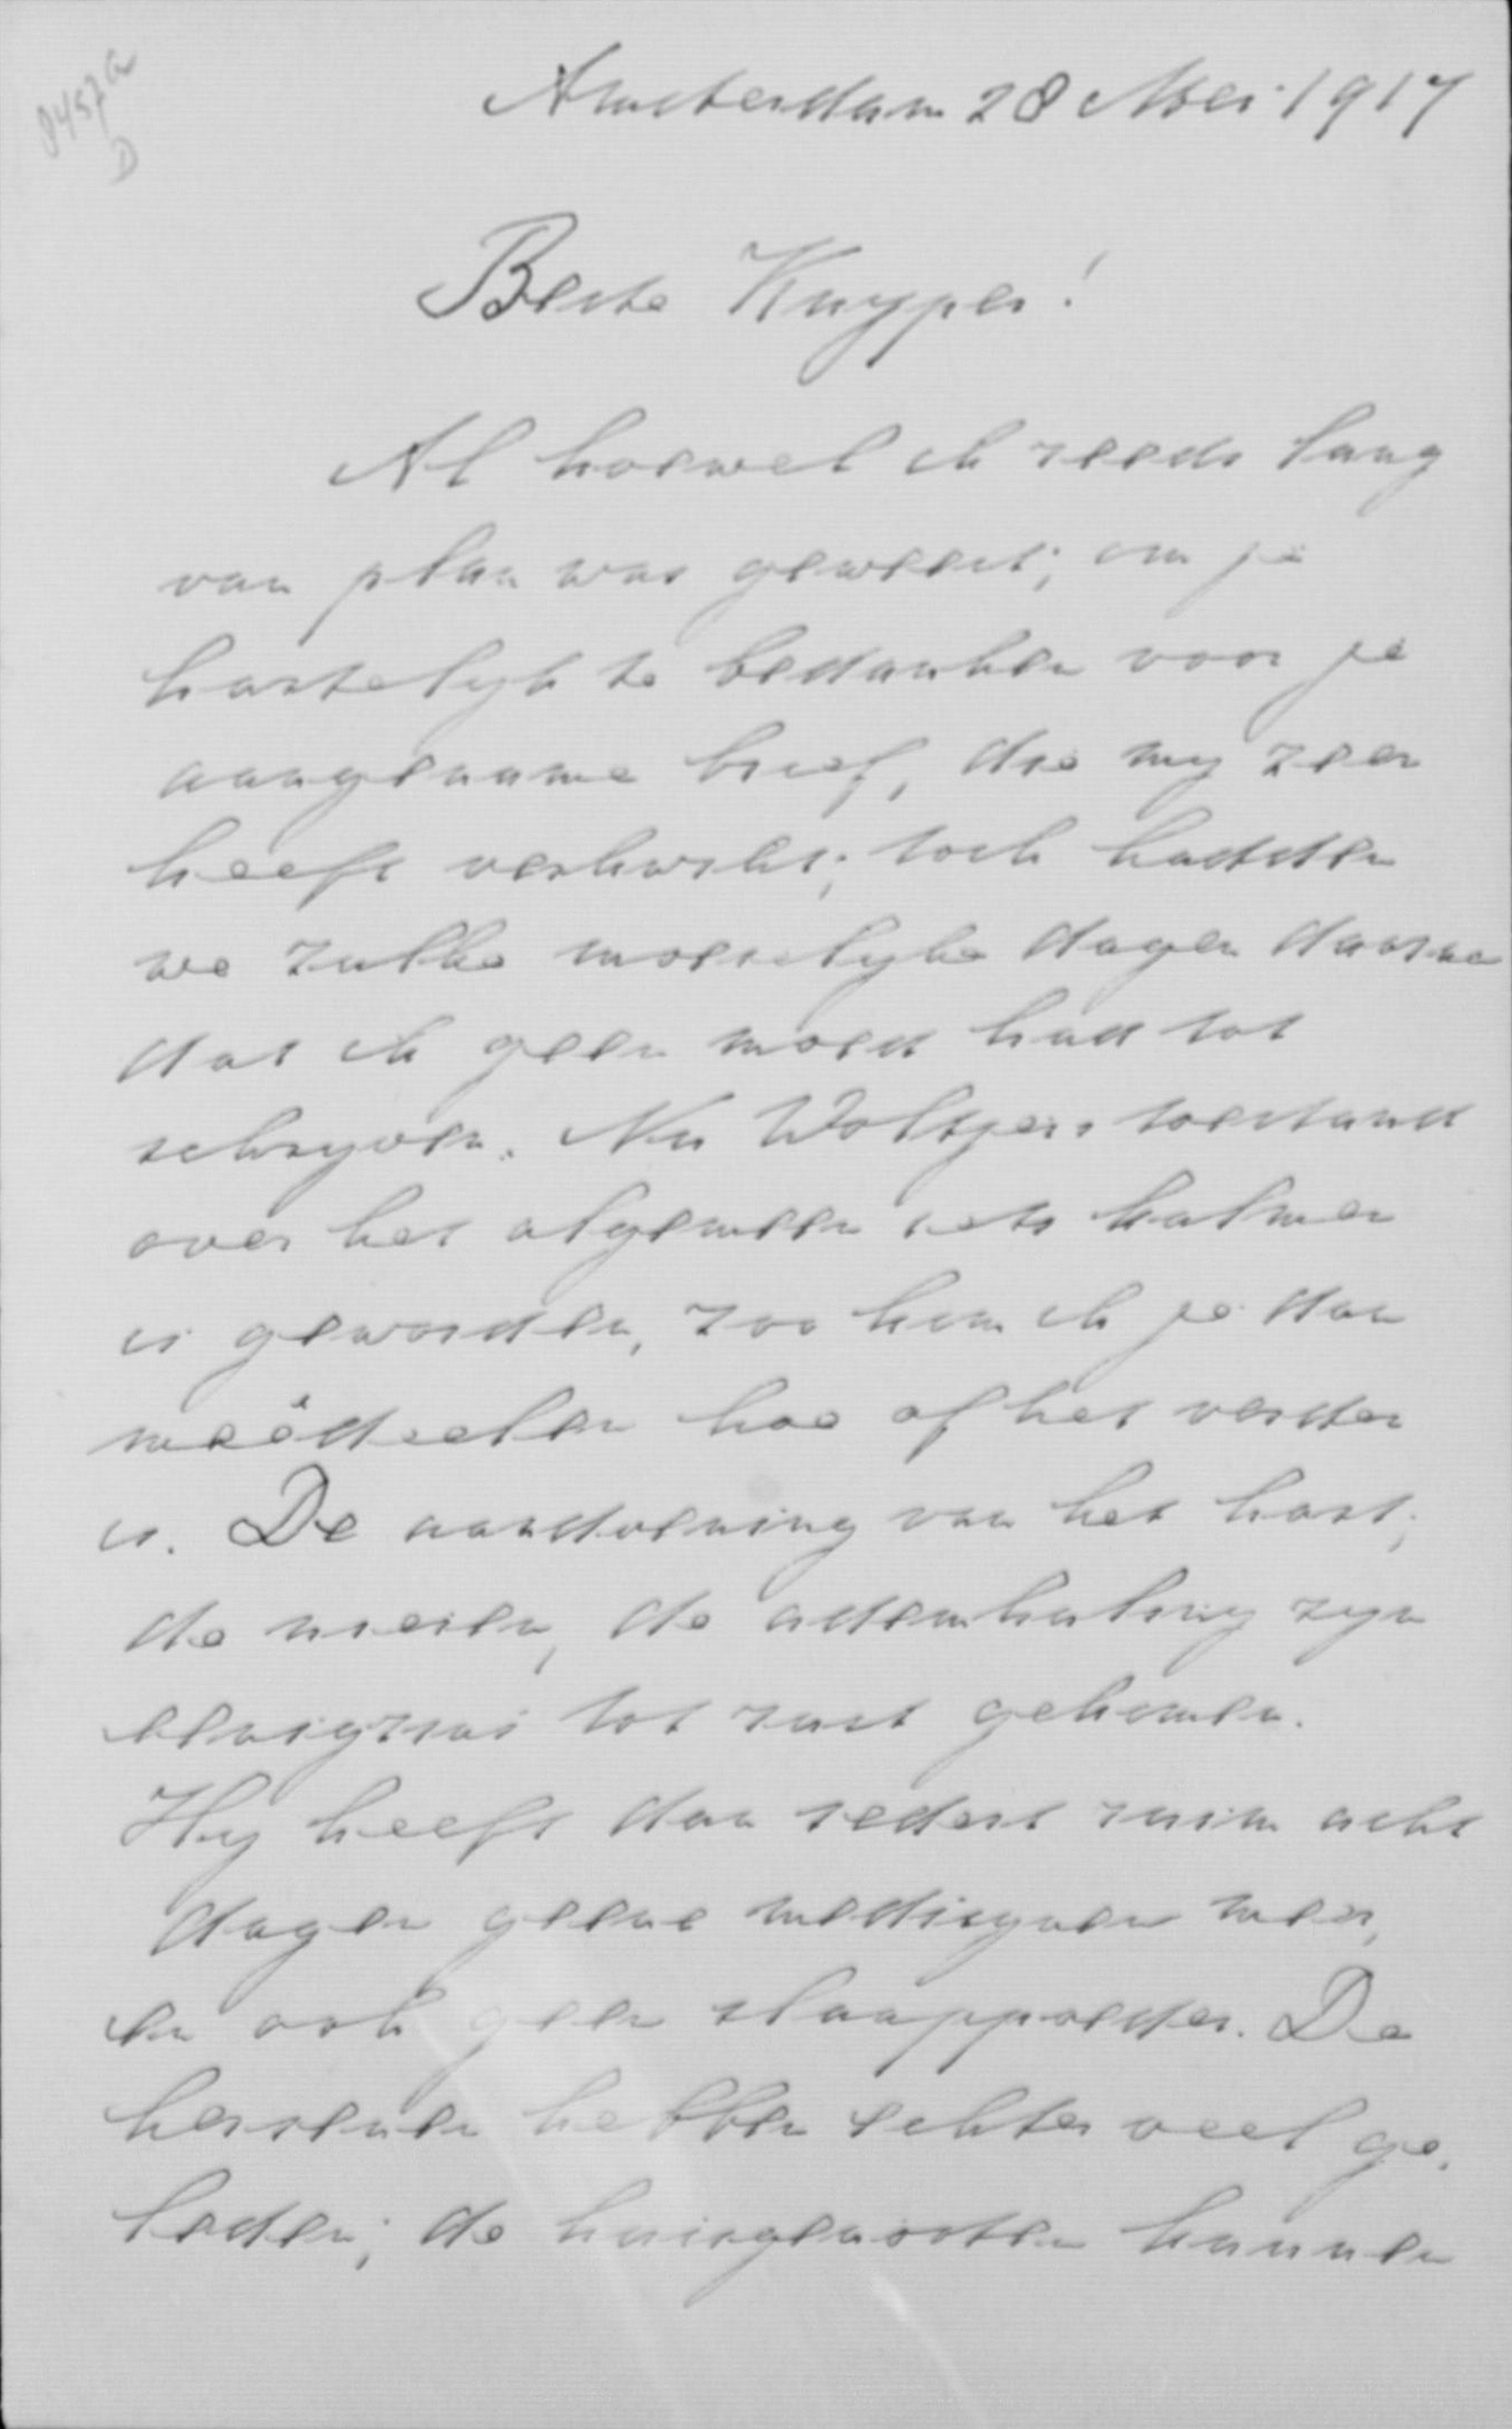 8457a
D
Amsterdam 28 Mei 1917
Beste Kuyper!
Al hoewel ik reeds lang
van plan was geweest; om je
hartelyk te bedanken voor je
aangename brief, die my zeer
heeft verkwikt; toch hadden
we zulke moeielyke dagen daarna
dat ik geen moed had tot
schryven. Nu Woltjers toestand
over het algemeen iets kalmer
is geworden, zoo kan ik je dan
meêdeelen hoe of het verder
is. De aandoening van het hart;
de nieren, de ademhaling zyn
eenigzins tot rust gekomen.
Hy heeft dan sedert ruim acht
dagen geene medicynen meer,
en ook geen slaappoeder. De
hersenen hebben echter veel ge.
leden; de huisgenooten kunnen